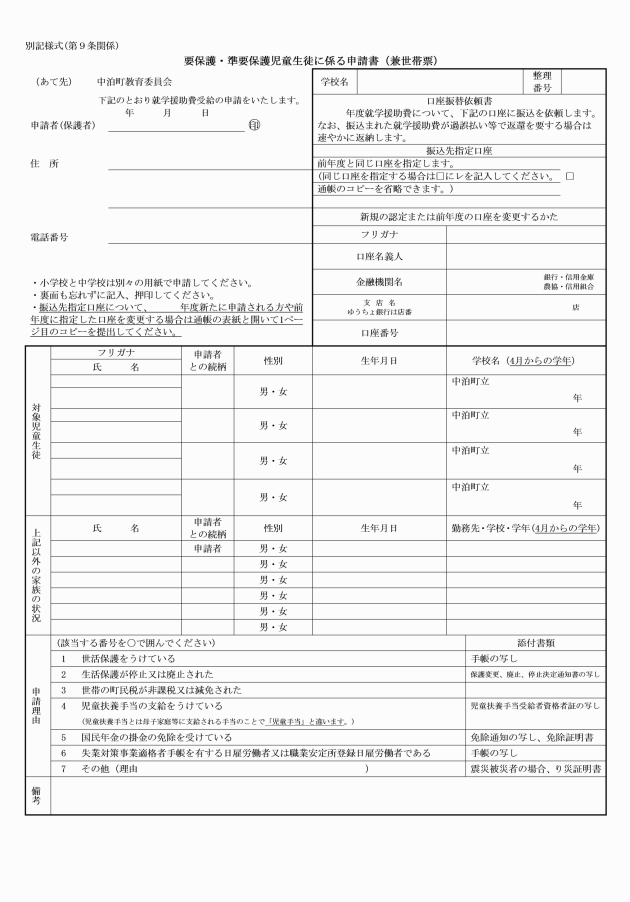 別記様式(第９条関係)
要保護・準要保護児童生徒に係る申請書（兼世帯票）
（あて先）　　中泊町教育委員会
下記のとおり就学援助費受給の申請をいたします。
年　　月　　日
申請者(保護者)　㊞
住　所
電話番号
・小学校と中学校は別々の用紙で申請してください。
・裏面も忘れずに記入、押印してください。
・振込先指定口座について、　　　年度新たに申請される方や前
年度に指定した口座を変更する場合は通帳の表紙と開いて1ペー
ジ目のコピーを提出してください。
学校名　整理
番号
口座振替依頼書
年度就学援助費について、下記の口座に振込を依頼します。
なお、振込まれた就学援助費が過誤払い等で返還を要する場合は
速やかに返納します。
振込先指定口座
前年度と同じ口座を指定します。
(同じ口座を指定する場合は□にレを記入してください。　□
通帳のコピーを省略できます。)
新規の認定または前年度の口座を変更するかた
フリガナ
口座名義人
金融機関名　銀行・信用金庫
農協・信用組合
支　店　名
ゆうちょ銀行は店番　店
口座番号
対象児童生徒
フリガナ
氏　　名
申請者
との続柄
性別
生年月日
学校名（4月からの学年）
男・女　中泊町立
年
男・女　中泊町立
年
男・女　中泊町立
年
男・女　中泊町立
年
上記以外の家族の状況
氏　　名
申請者
との続柄
性別
生年月日
勤務先・学校・学年(4月からの学年)
申請者　男・女
男・女
男・女
男・女
男・女
男・女
申請理由
(該当する番号を○で囲んでください)　添付書類
1　世活保護をうけている　手帳の写し
2　生活保護が停止又は廃止された　保護変更、廃止、停止決定通知書の写し
3　世帯の町民税が非課税又は減免された
4　児童扶養手当の支給をうけている　児童扶養手当受給者資格者証の写し
(児童扶養手当とは母子家庭等に支給される手当のことで「児童手当」と違います。)
5　国民年金の掛金の免除を受けている　免除通知の写し、免除証明書
6　失業対策事業適格者手帳を有する日雇労働者又は職業安定所登録日雇労働者である　手帳の写し
7　その他（理由　　　）　震災被災者の場合、り災証明書
備考